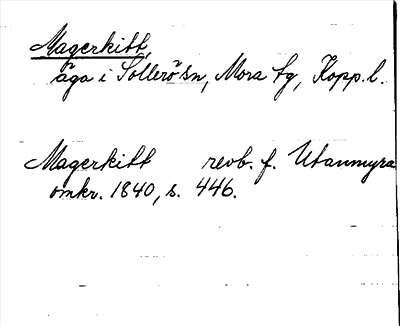 Magerkitt,
äga i Sollerö sn, Mora tg, Kopp. l.
Magerkitt revb. f. Utanmyra
omkr. 1840, s. 446.